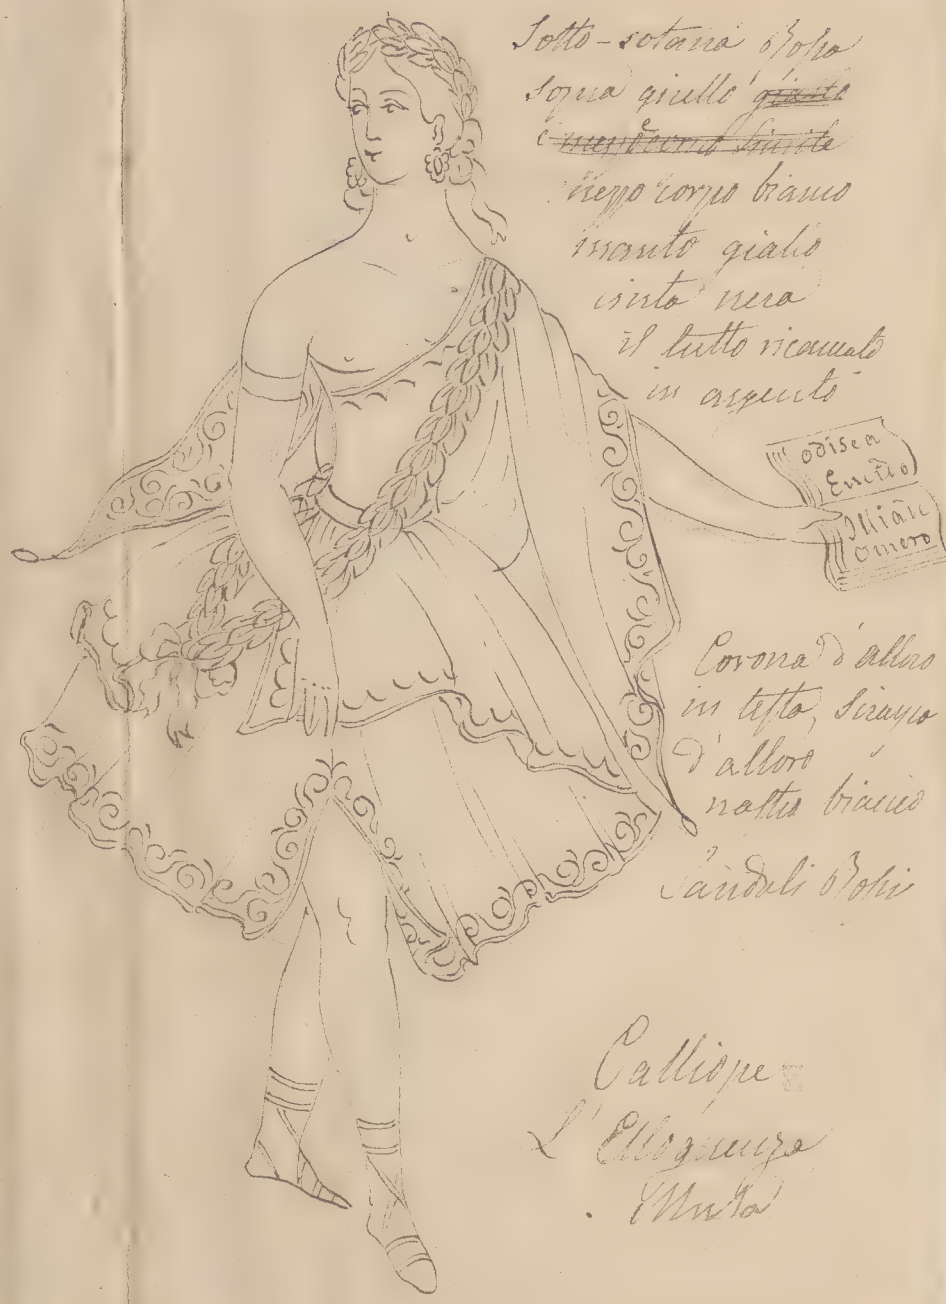 Sotto-sotana Rosa
sopra giallo
mezzo corpo bianco
manto giallo
cinta nera
il tutto ricamato
in argento
odisea
Omero
Corona d'alloro
in testa, sirayo
d'alloro
nastro bianco
Sandali Rosi
Calliope
L'Elloquenza
Musa